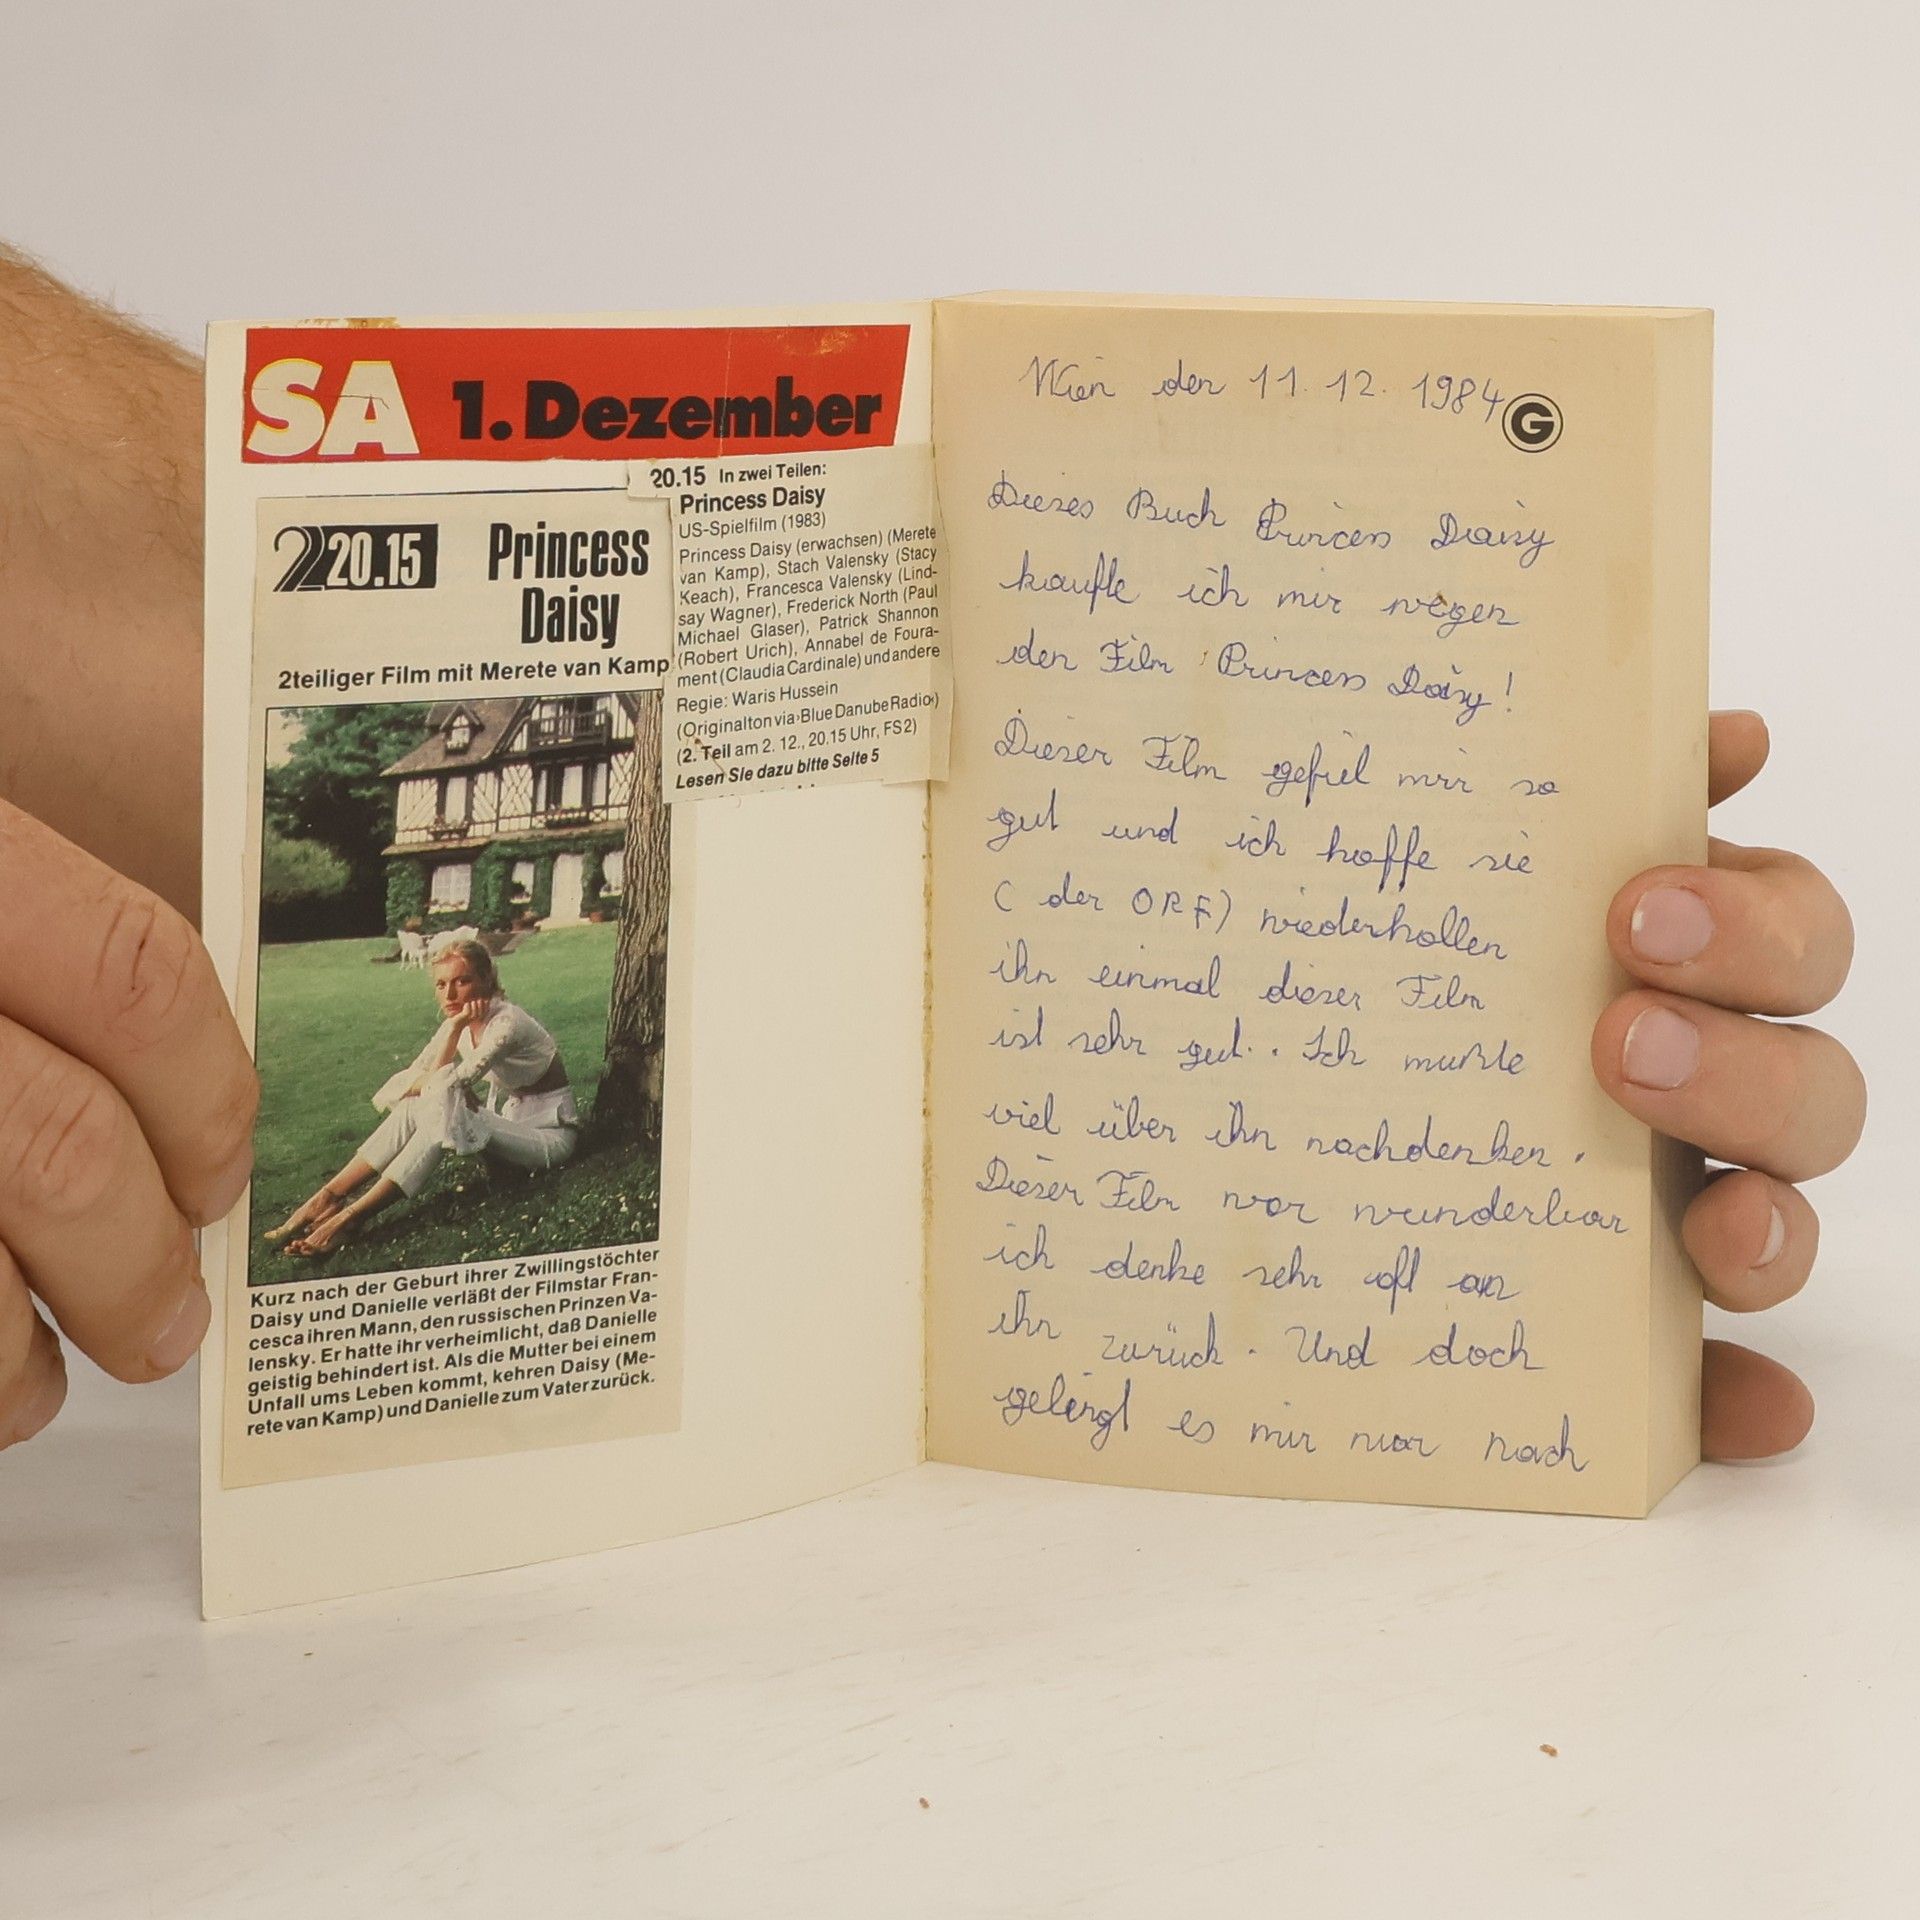 SA 1. Dezember
2 20.15 Princess
Daisy
2teiliger Film mit Merete van Kamp
20.15 In zwei Teilen:
Princess Daisy
US-Spielfilm (1983)
Princess Daisy (erwachsen) (Merete
van Kamp), Stach Valensky (Stacy
Keach), Francesca Valensky (Lind-
say Wagner), Frederick North (Paul
Michael Glaser), Patrick Shannon
(Robert Urich), Annabel de Foura-
ment (Claudia Cardinale) und andere
Regie: Waris Hussein
(Originalton via ›Blue Danube Radio‹)
(2. Teil am 2. 12., 20.15 Uhr, FS 2)
Lesen Sie dazu bitte Seite 5
Kurz nach der Geburt ihrer Zwillingstöchter
Daisy und Danielle verläßt der Filmstar Fran-
cesca ihren Mann, den russischen Prinzen Va-
lensky. Er hatte ihr verheimlicht, daß Danielle
geistig behindert ist. Als die Mutter bei einem
Unfall ums Leben kommt, kehren Daisy (Me-
rete van Kamp) und Danielle zum Vater zurück.
Wien den 11. 12. 1984
G
Dieses Buch Princess Daisy
kaufte ich mir wegen
den Film Princess Daisy!
Dieser Film gefiel mir so
gut und ich hoffe sie
( der ORF) wiederhollen
ihn einmal dieser Film
ist sehr gut.. Ich mußte
viel über ihn nachdenken.
Dieser Film war wunderbar
ich denke sehr oft an
ihn zurück. Und doch
gelingt es mir nur nach